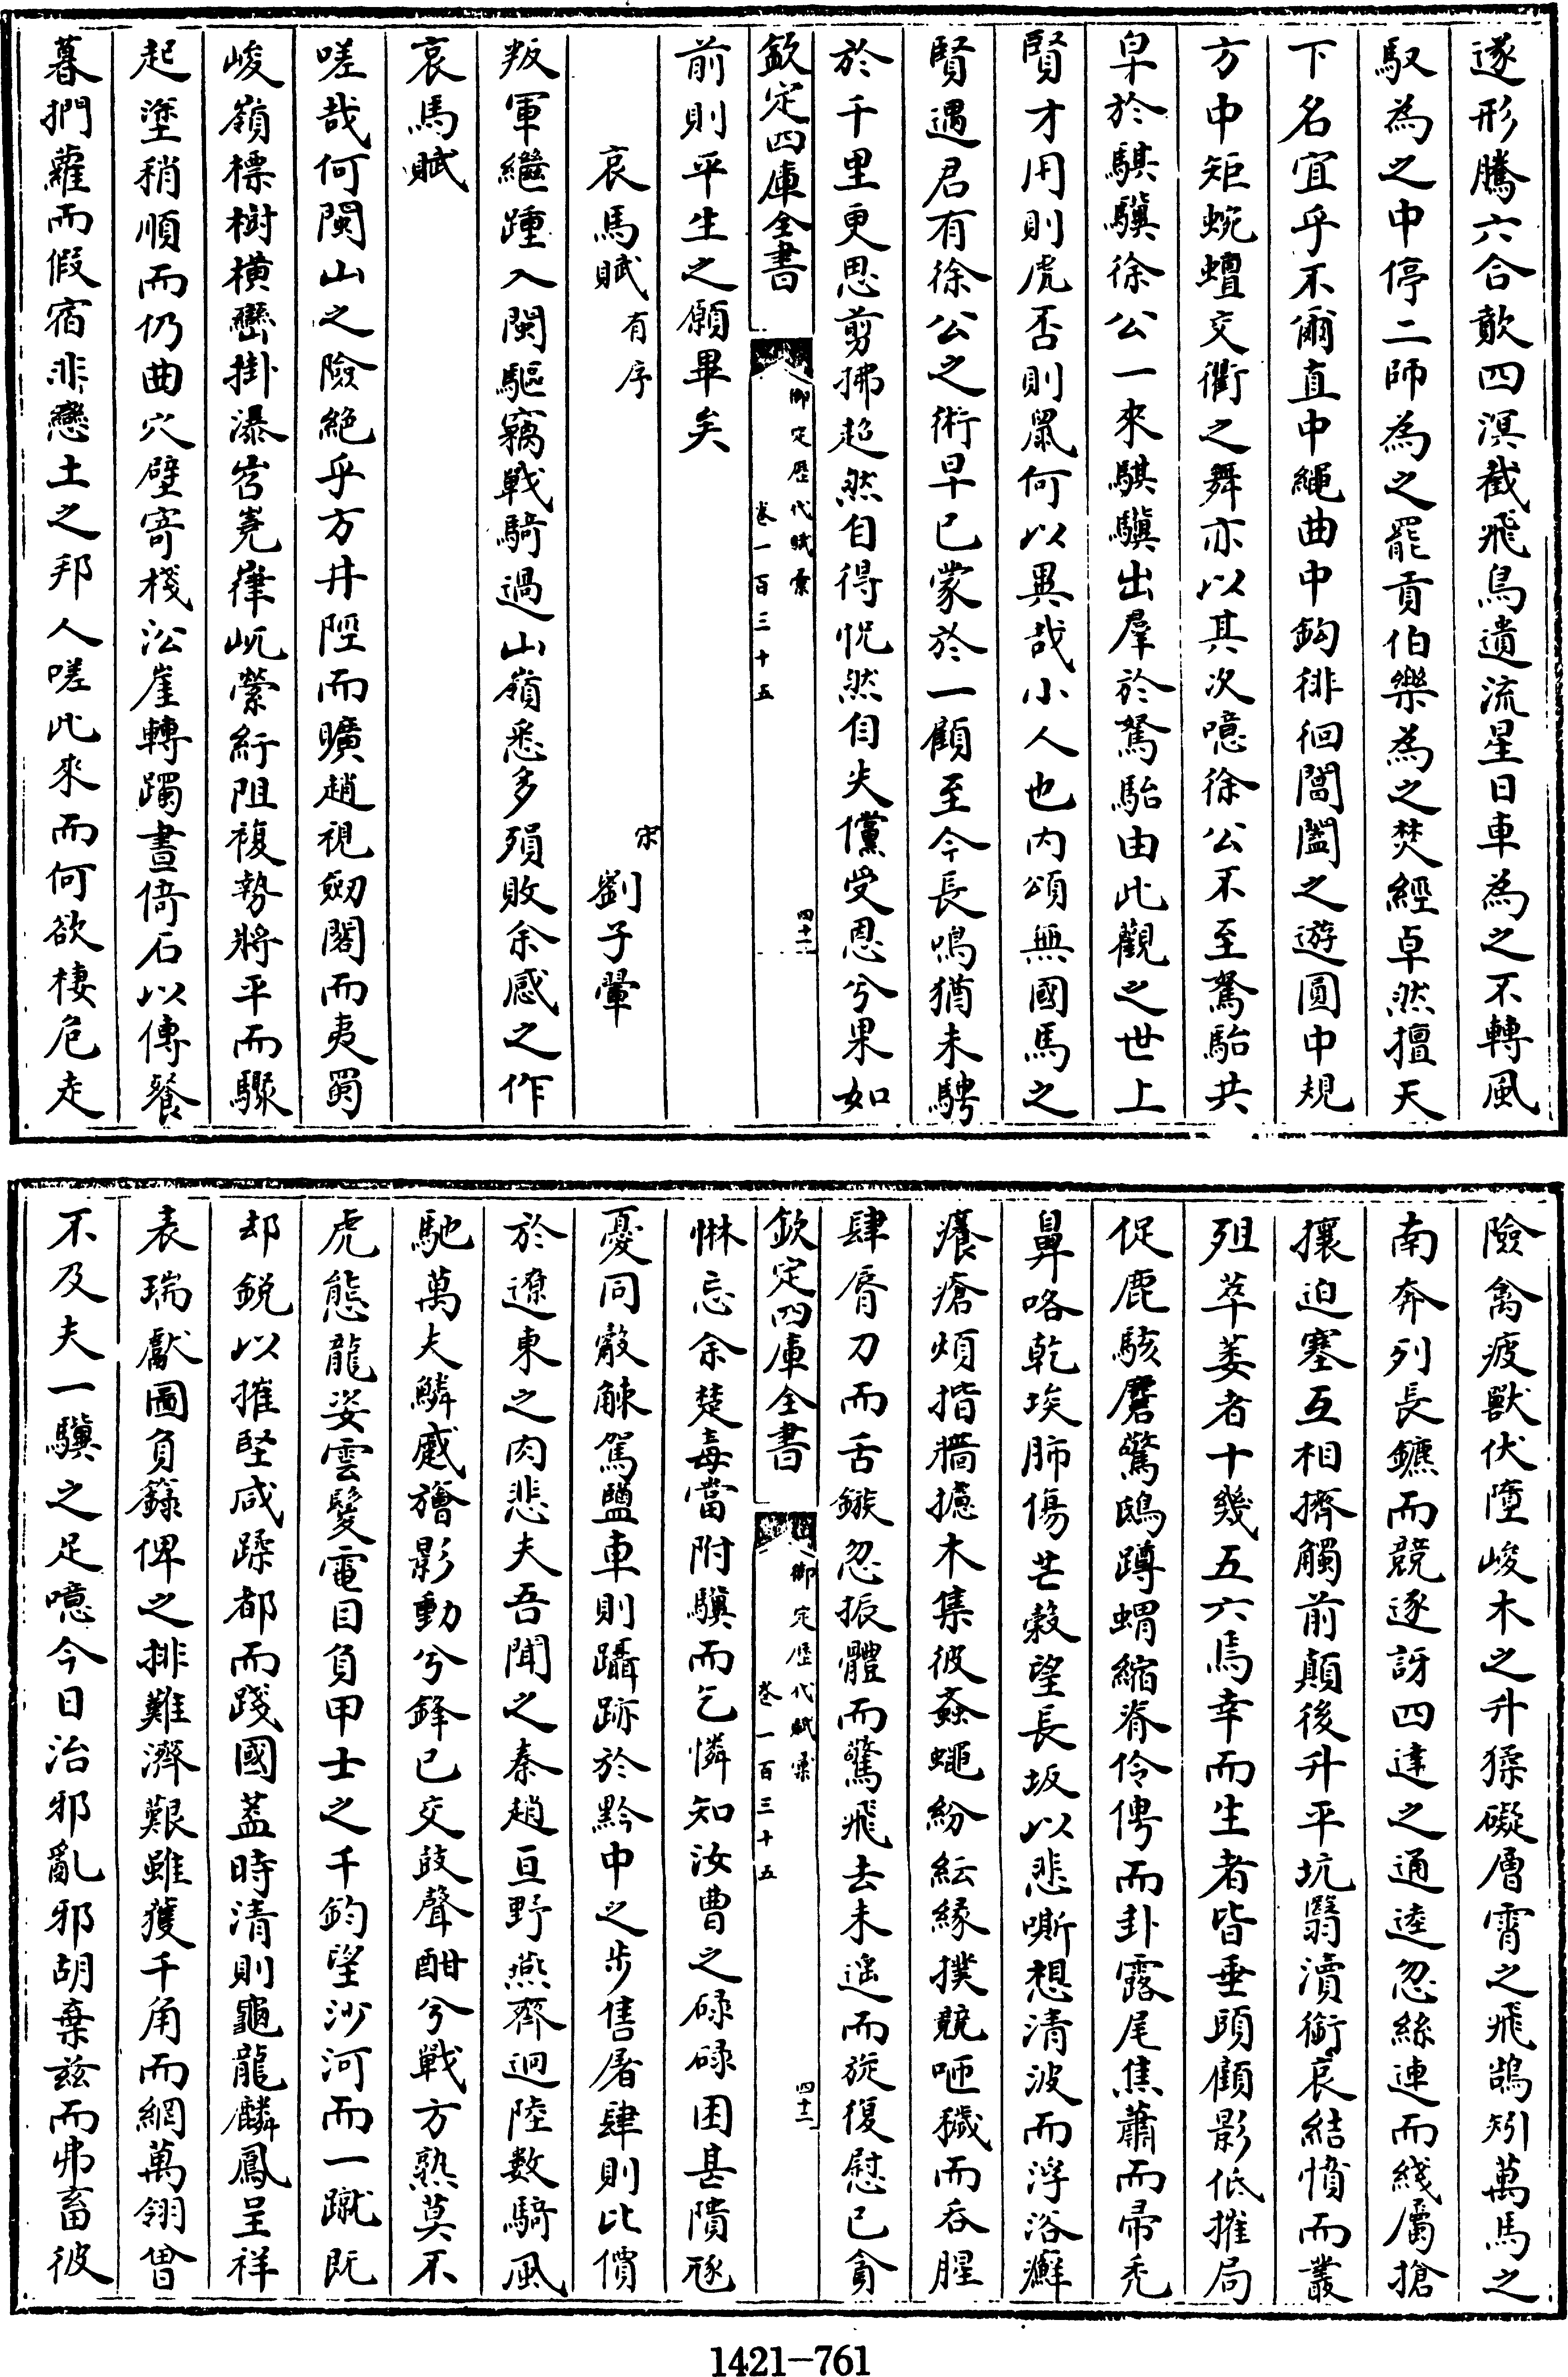 遂形騰六合歕四溟截飛鳥遺流星日車為之不轉風
馭為之中停二師為之罷貢伯樂為之焚經卓然擅天
下名宜乎不爾直中繩曲中鈎徘徊閶闔之遊圓中規
方中矩蜿蟺交衢之舞亦以其次噫徐公不至駑駘共
皁於騏驥徐公一來騏驥出羣於駑駘由此觀之世上
賢才用則虎否則鼠何以異哉小人也内頌無國馬之
賢遇君有徐公之術早已蒙於一顧至今長鳴猶未騁
於千里更思剪拂超然自得怳然自失儻受恩兮果如
欽定四庫全書
御定歴代賦彙
卷一百三十五
四十一
前則平生之願畢矣
哀馬賦有序
宋劉子翬
叛軍繼踵入閩驅竊戰騎過山嶺悉多殞敗余感之作
哀馬賦
嗟哉何閩山之險絶乎方井陘而曠趙視劒閣而夷蜀
峻嶺標樹横巒掛瀑岧嶤嵂屼縈紆阻複勢將平而驟
起塗稍順而仍曲穴壁寄棧㳂崖轉躅晝倚石以傳餐
暮捫蘿而假宿非戀土之邦人嗟此來而何欲棲危走
險禽疲獸伏墮峻木之升猱礙層霄之飛鵠矧萬馬之
南奔列長鑣而競逐訝四達之通逵忽絲連而綫屬搶
攘迫塞互相擠觸前顛後升平坑翳瀆銜哀結憤而叢
殂萃萎者十幾五六馬幸而生者皆垂頭顧影低摧局
促鹿駭麏驚鴟蹲蝟縮脊伶俜而卦露尾焦蕭而帚禿
鼻咯乾埃肺傷芒榖望長坂以悲嘶想清波而浮浴癬
癢瘡煩揩牆攄木集彼蚉蠅紛紜緣撲競咂穢而吞腥
肆脣刀而舌鏃忽振體而驚飛去未遥而旋復慰已貪
欽定四庫全書
御定歴代賦彙
卷一百三十五
四十二
惏忘余楚毒當附驥而乞憐知汝曹之碌碌困甚隤豗
憂同觳觫駕鹽車則躡跡於黔中之步售屠肆則比價
於遼東之肉悲夫吾聞之秦趙亘野燕齊迥陸數騎風
馳萬夫鱗蹙旝影動兮鋒已交鼓聲酣兮戰方熟莫不
虎態龍姿雲鬉電目負甲士之千鈞望沙河而一蹴既
却鋭以摧堅咸蹂都而踐國葢時清則龜龍麟鳳呈祥
表瑞獻圖負籙俾之排難濟艱雖獲千角而網萬翎曾
不及夫一驥之足噫今日治邪亂邪胡棄兹而弗畜彼
1421—761